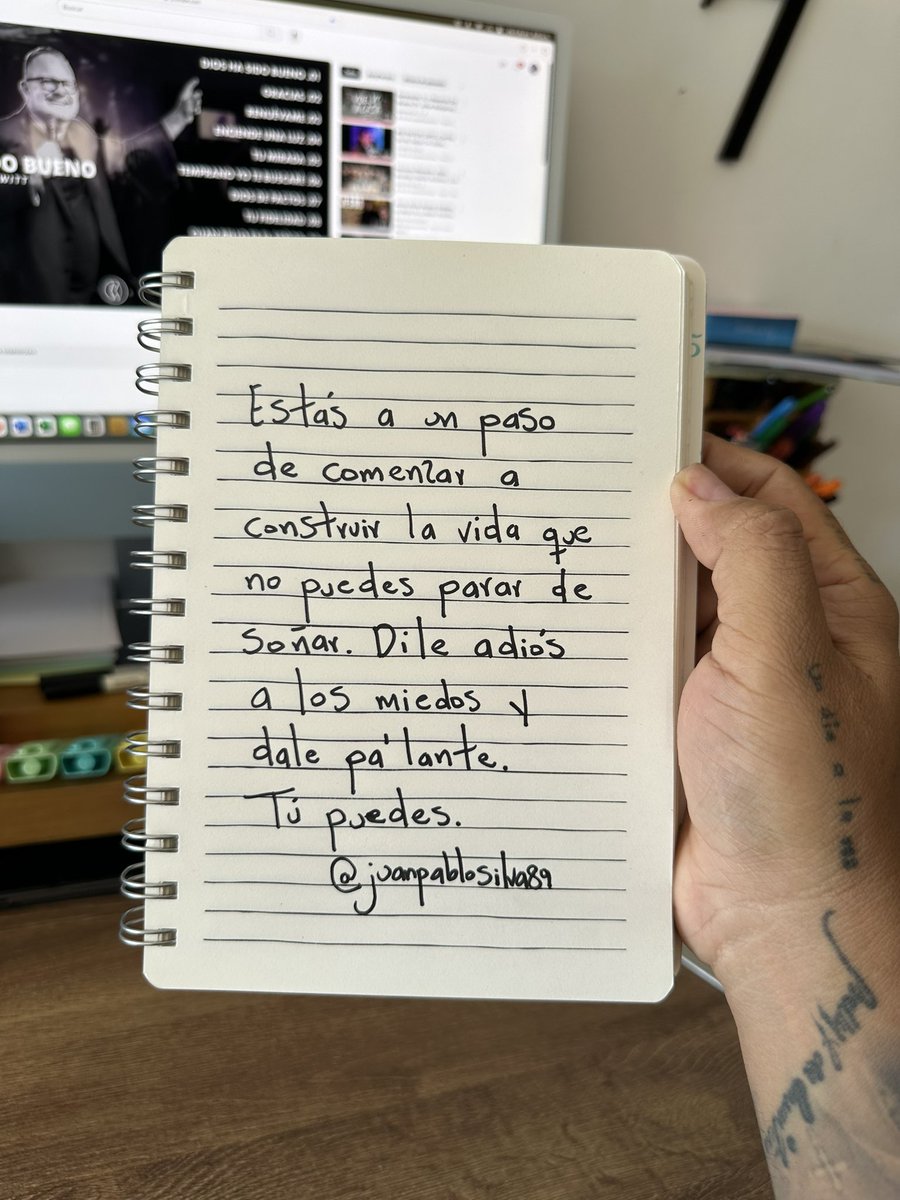 DIOS HA SIDO BUENO
GRACIAS
RENUÉVAME
ENCIENDE UNA LUZ
TU MIRADA
TEMPRANO YO TE BUSCARÉ
DIOS DE PACTOS
TU FIDELIDAD
O BUENO
WITT
Estás a un paso
de comenzar a
construir la vida que
no puedes parar de
Soñar. Dile adiós
a los miedos y
dale pa'lante.
Tú puedes.
@juanpablosilva89
Un día a la vez